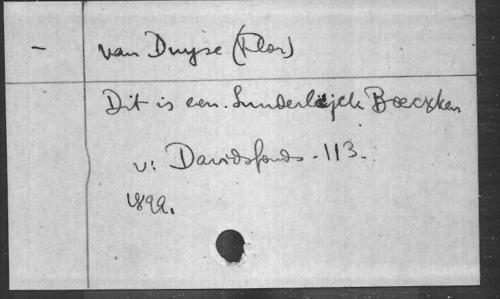 – van Duyse (Flor)
Dit is een Sunderlijck Boecxken
v: Davidsfonds - 113.
1899.